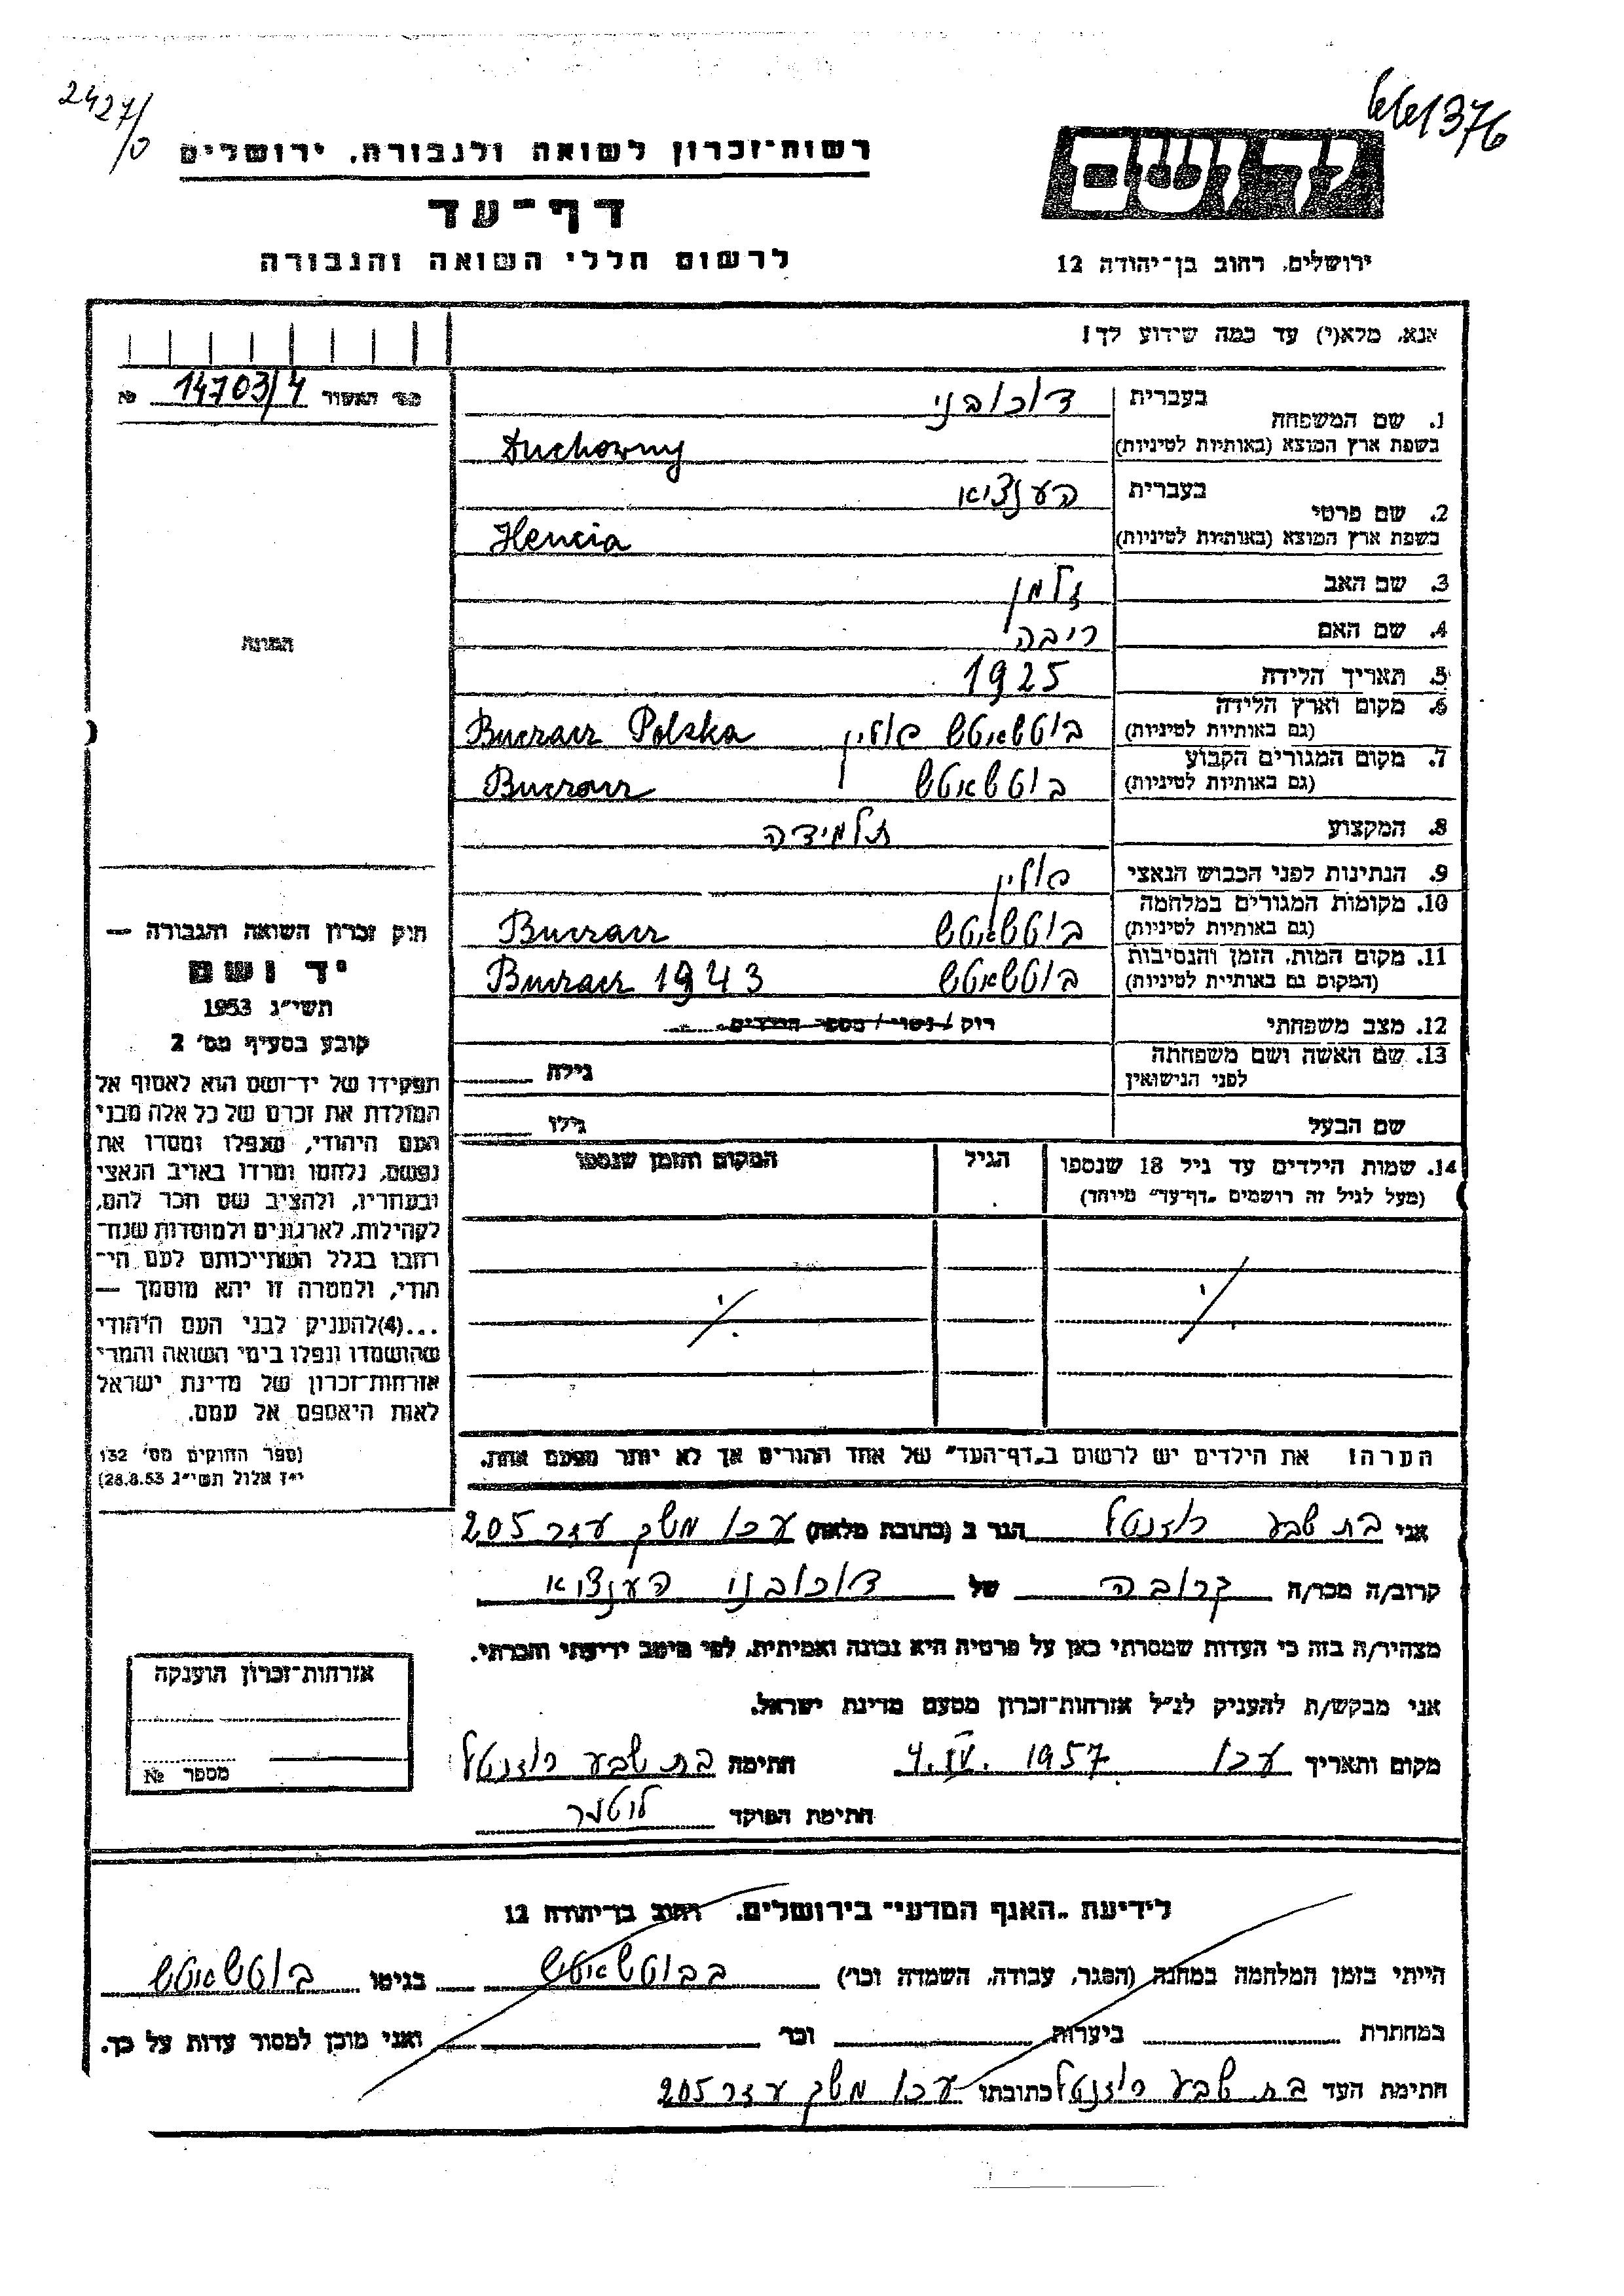 2427/0
1376
רשות-זכרון לשואה ולגבורה, ירושלים
דף-עד
לרשום חללי השואה והגבורה
יד ושם
ירושלים, רחוב בן-יהודה 12
אנא, מלא(י) עד כמה שידוע לך!
מס' האשור № 14703/4
1. שם המשפחה
בעברית דוכובני
בשפת ארץ המוצא (באותיות לטיניות) Duchowny
2. שם פרטי
בעברית הענציא
בשפת ארץ המוצא (באותיות לטיניות) Hencia
3. שם האב זלמן
4. שם האם ריבה
5. תאריך הלידה 1925
6. מקום וארץ הלידה (גם באותיות לטיניות) בוטשאטש פולין Buczacz Polska
7. מקום המגורים הקבוע (גם באותיות לטיניות) בוטשאטש Buczacz
8. המקצוע תלמידה
9. הנתינות לפני הכבוש הנאצי פולין
10. מקומות המגורים במלחמה (גם באותיות לטיניות) בוטשאטש Buczacz
11. מקום המות, הזמן והנסיבות (המקום גם באותיות לטיניות) בוטשאטש Buczacz 1943
12. מצב משפחתי רוק / נשוי / מספר הילדים
13. שם האשה ושם משפחתה לפני הנישואין גילה
שם הבעל גילו
14. שמות הילדים עד גיל 18 שנספו (מעל לגיל זה רושמים "דף-עד" מיוחד)
הגיל
המקום והזמן שנספו
הערה: את הילדים יש לרשום ב"דף-העד" של אחד ההורים אך לא יותר מפעם אחת.
התמונה
חוק זכרון השואה והגבורה —
יד ושם
תשי"ג 1953
קובע בסעיף מס' 2
תפקידו של יד-ושם הוא לאסוף אל
המולדת את זכרם של כל אלה מבני
העם היהודי, שנפלו ומסרו את
נפשם, נלחמו ומרדו באויב הנאצי
ובעוזריו, ולהציב שם וזכר להם,
לקהילות, לארגונים ולמוסדות שנח-
רבו בגלל השתייכותם לעם הי-
הודי, ולמטרה זו יהא מוסמך —
...(4) להעניק לבני העם היהודי
שהושמדו ונפלו בימי השואה והמרי
אזרחות-זכרון של מדינת ישראל
לאות היאספם אל עמם.
(ספר החוקים מס' 132
י"ז אלול תשי"ג 28.8.53)
אני בת שבע רוזנטל הגר ב (כתובת מלאה) עכו משק עזר 205
קרוב/ה מכר/ה קרובה של דוכובני הענציא
מצהיר/ה בזה כי העדות שמסרתי כאן על פרטיה היא נכונה ואמיתית, לפי מיטב ידיעתי והכרתי.
אני מבקש/ת להעניק לנ"ל אזרחות-זכרון מטעם מדינת ישראל.
מקום ותאריך עכו 4.IV.1957 חתימה בת שבע רוזנטל
חתימת הפוקד
אזרחות-זכרון הוענקה
מספר №
לידיעת "האגף המדעי" בירושלים, רחוב בן-יהודה 12
הייתי בזמן המלחמה במחנה (הסגר, עבודה, השמדה וכו') בבוטשאטש בגיטו בוטשאטש
במחתרת ביערות וכו' ואני מוכן למסור עדות על כך.
חתימת העד בת שבע רוזנטל כתובתו עכו משק עזר 205